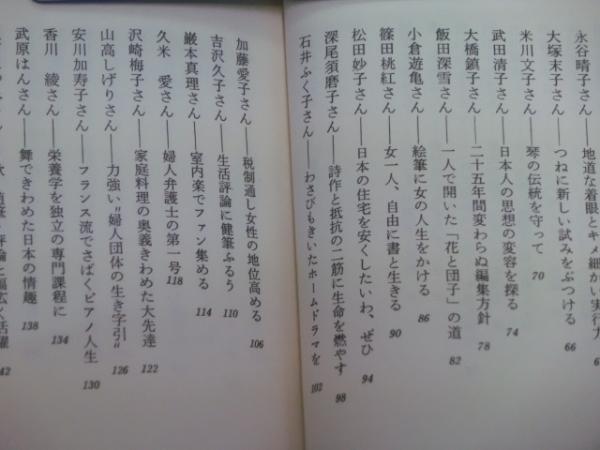 永谷晴子さん――地道な着眼とキメ細かい実行力 6
大塚末子さん――つねに新しい試みをぶつける 66
米川文子さん――琴の伝統を守って 70
武田清子さん――日本人の思想の変容を探る 74
大橋鎮子さん――二十五年間変わらぬ編集方針 78
飯田深雪さん――一人で開いた「花と団子」の道 82
小倉遊亀さん――絵筆に女の人生をかける 86
篠田桃紅さん――女一人、自由に書と生きる 90
松田妙子さん――日本の住宅を安くしたいわ、ぜひ 94
深尾須磨子さん――詩作と抵抗の二筋に生命を燃やす 98
石井ふく子さん――わさびもきいたホームドラマを 102
加藤愛子さん――税制通し女性の地位高める 106
吉沢久子さん――生活評論に健筆ふるう 110
巌本真理さん――室内楽でファン集める 114
久米 愛さん――婦人弁護士の第一号 118
沢崎梅子さん――家庭料理の奥義きわめた大先達 122
山高しげりさん――力強い〝婦人団体の生き字引〟 126
安川加寿子さん――フランス流でさばくピアノ人生 130
香川 綾さん――栄養学を独立の専門課程に 134
武原はんさん――舞できわめた日本の情趣 138
評論と幅広く活躍 142